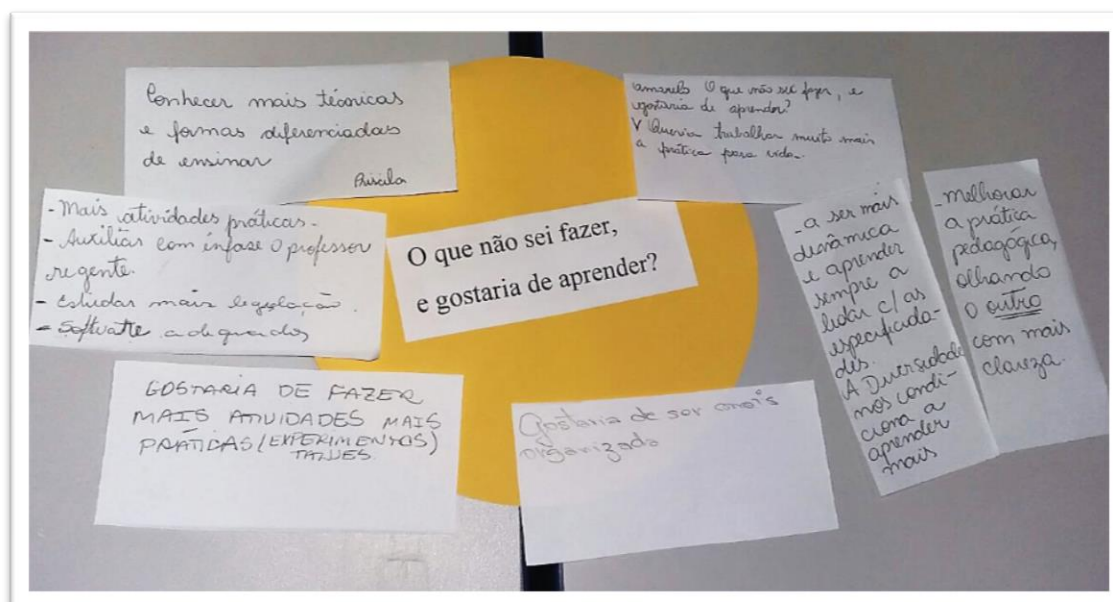 Conhecer mais técnicas
e formas diferenciadas
de ensinar
Priscila
amarelo O que não sei fazer, e
gostaria de aprender?
V Queria trabalhar muito mais
a prática para vida.
- Mais atividades práticas.
- Auxiliar com infase o professor
regente.
- Estudar mais legislação.
- Software adequados
O que não sei fazer,
e gostaria de aprender?
- a ser mais
dinâmica
e aprender
sempre a
lidar c/ as
especificida-
des.
A Diversidade
nos condi-
ciona a
aprender
mais
- Melhorar
a prática
pedagógica,
olhando
o outro
com mais
clareza.
GOSTARIA DE FAZER
MAIS ATIVIDADES MAIS
PRÁTICAS (EXPERIMENTOS)
Gostaria de ser mais
organizada